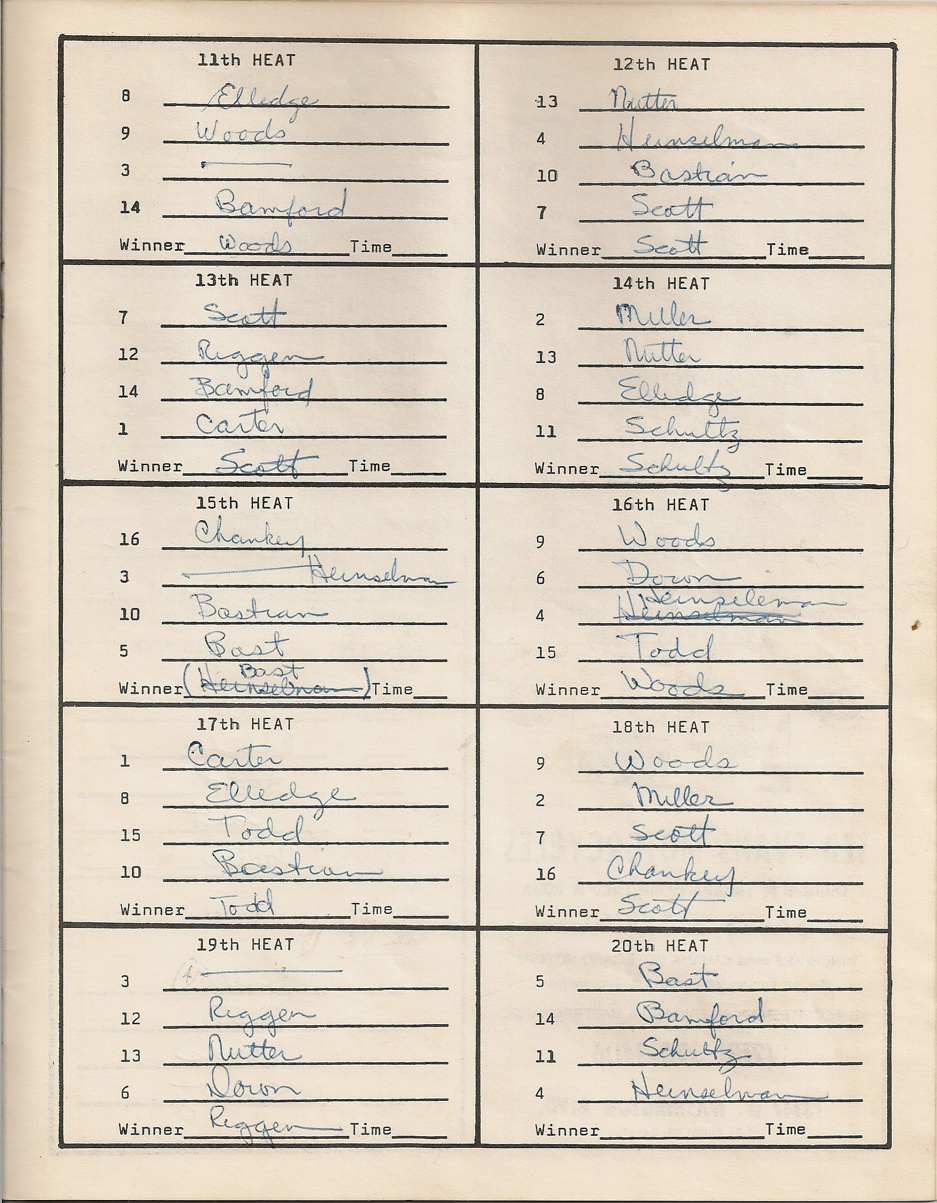 11th HEAT
8 Elledge
9 Woods
3
14 Bamford
Winner Woods Time
12th HEAT
13 Nutter
4 Heinselman
10 Bastian
7 Scott
Winner Scott Time
13th HEAT
7 Scott
12 Riggen
14 Bamford
1 Carter
Winner Scott Time
14th HEAT
2 Miller
13 Nutter
8 Elledge
11 Schultz
Winner Schultz Time
15th HEAT
16 Chankey
3 Heinselman
10 Bastian
5 Bast
Bast
Winner (Heinselman) Time
16th HEAT
9 Woods
6 Down
Heinseleman
4 Heinselman
15 Todd
Winner Woods Time
17th HEAT
1 Carter
8 Elledge
15 Todd
10 Bastian
Winner Todd Time
18th HEAT
9 Woods
2 Miller
7 Scott
16 Chankey
Winner Scott Time
19th HEAT
3
12 Riggen
13 Nutter
6 Down
Winner Riggen Time
20th HEAT
5 Bast
14 Bamford
11 Schultz
4 Heinselman
Winner Time